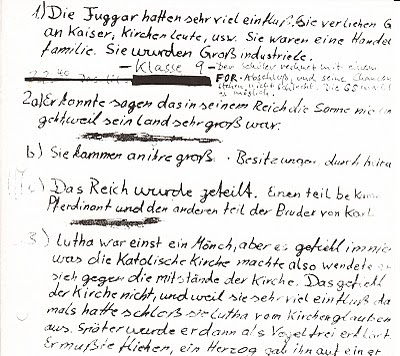 1.) Die Fuggar hatten sehr viel einfluß. Sie verliehen G
an Kaiser, Kirchenleute, usw. Sie waren eine Handel
familie. Sie wurden Großindustriele.
– Klasse 9 – Der Schüler rechnet mit einem
FOR-Abschluß, und seine Chancen
stehen nicht schlecht. Die GS macht
es möglich.
2a) Er konnte sagen das in seinem Reich die Sonne nie un
geht weil sein Land sehr groß war.
b) Sie kammen an ihre groß. Besitzungen durch heira
c) Das Reich wurde geteilt. Einen teil bekam
Pferdinant und den anderen teil der Bruder von Karl.
3.) Lutha war einst ein Mönch, aber es gefiehl im nie
was die Katolische Kirche machte also wendete
sich gegen die mitstände der Kirche. Das gefiehl
der Kirche nicht, und weil sie sehr viel einfluß da
mals hatte schloß sie Lutha vom Kirchenglauben
aus. Später wurde er dann als Vogelfrei erklärt.
Er mußte fliehen, ein Herzog gab ihn auf einer